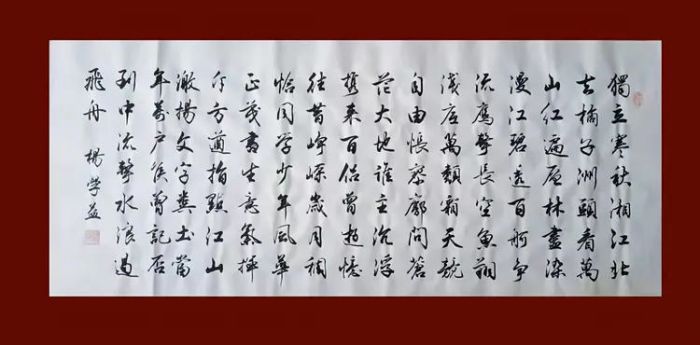 獨立寒秋湘江北
去橘子洲頭看萬
山紅遍层林盡染
漫江碧透百舸爭
流鹰擊長空魚翔
淺底萬類霜天競
自由悵寥廓問蒼
茫大地誰主沉浮
攜來百侣曾遊憶
往昔崢嶸歲月稠
恰同学少年風華
正茂書生意氣揮
斥方遒指點江山
激揚文字糞土當
年萬户侯曾記否
到中流擊水浪遏
飛舟 楊学益